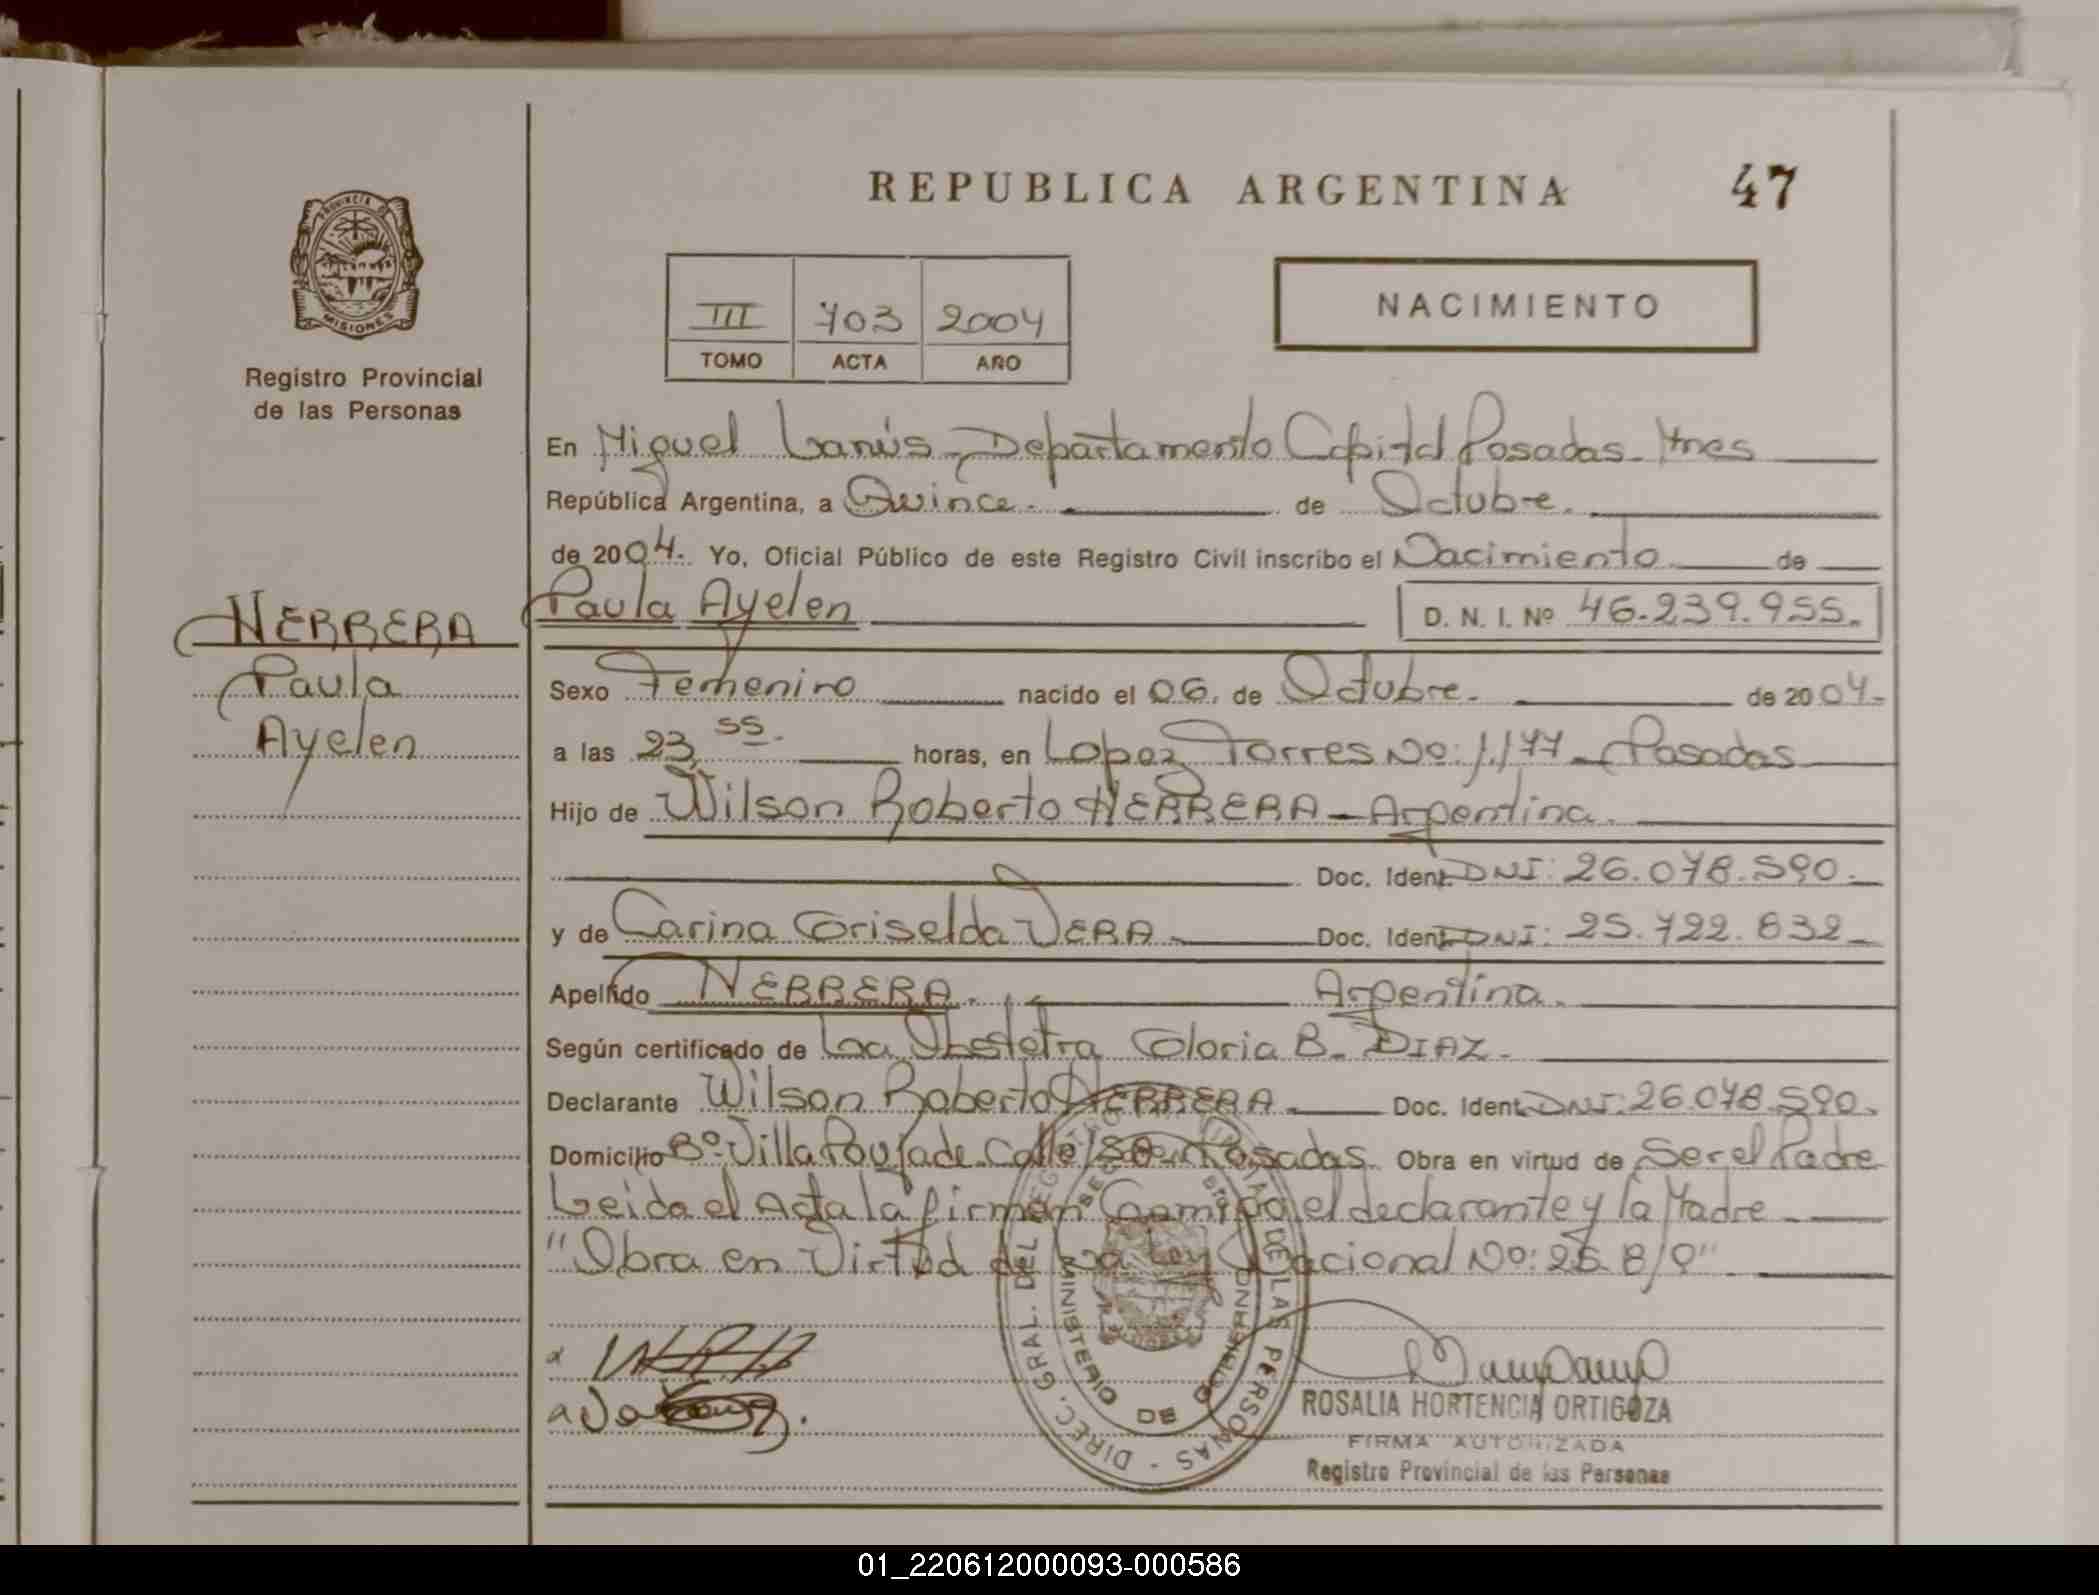 REPUBLICA ARGENTINA
47
PROVINCIA DE
MISIONES
Registro Provincial
de las Personas
III 703 2004
TOMO ACTA AÑO
NACIMIENTO
En Miguel Lanús - Departamento Capital Posadas - Mnes
República Argentina, a Quince. de Octubre.
de 2004. Yo, Oficial Público de este Registro Civil inscribo el Nacimiento de
Paula Ayelen D. N. I. Nº 46.239.955.
HERRERA
Paula
Ayelen
Sexo Femenino nacido el 06. de Octubre. de 2004.
a las 23,55. horas, en Lopez Torres No: 1.177 - Posadas
Hijo de Wilson Roberto HERRERA - Argentina.
Doc. Ident. DNI: 26.078.590.
y de Carina Griselda VERA Doc. Ident. DNI: 25.722.832
Apellido HERRERA. Argentina.
Según certificado de La Obstetra Gloria B. DIAZ.
Declarante Wilson Roberto HERRERA Doc. Ident. DNI: 26.078.590.
Domicilio Bº Villa Poujade Calle Posadas. Obra en virtud de Ser el Padre
Leida el Acta la firman Conmigo el declarante y la Madre
"Obra en Virtud de La Ley Nacional No: 25.819"
DIREC. GRAL. DEL REGISTRO PROVINCIAL DE LAS PERSONAS
MINISTERIO DE GOBIERNO
ROSALIA HORTENCIA ORTIGOZA
FIRMA AUTORIZADA
Registro Provincial de las Personas
01_220612000093-000586